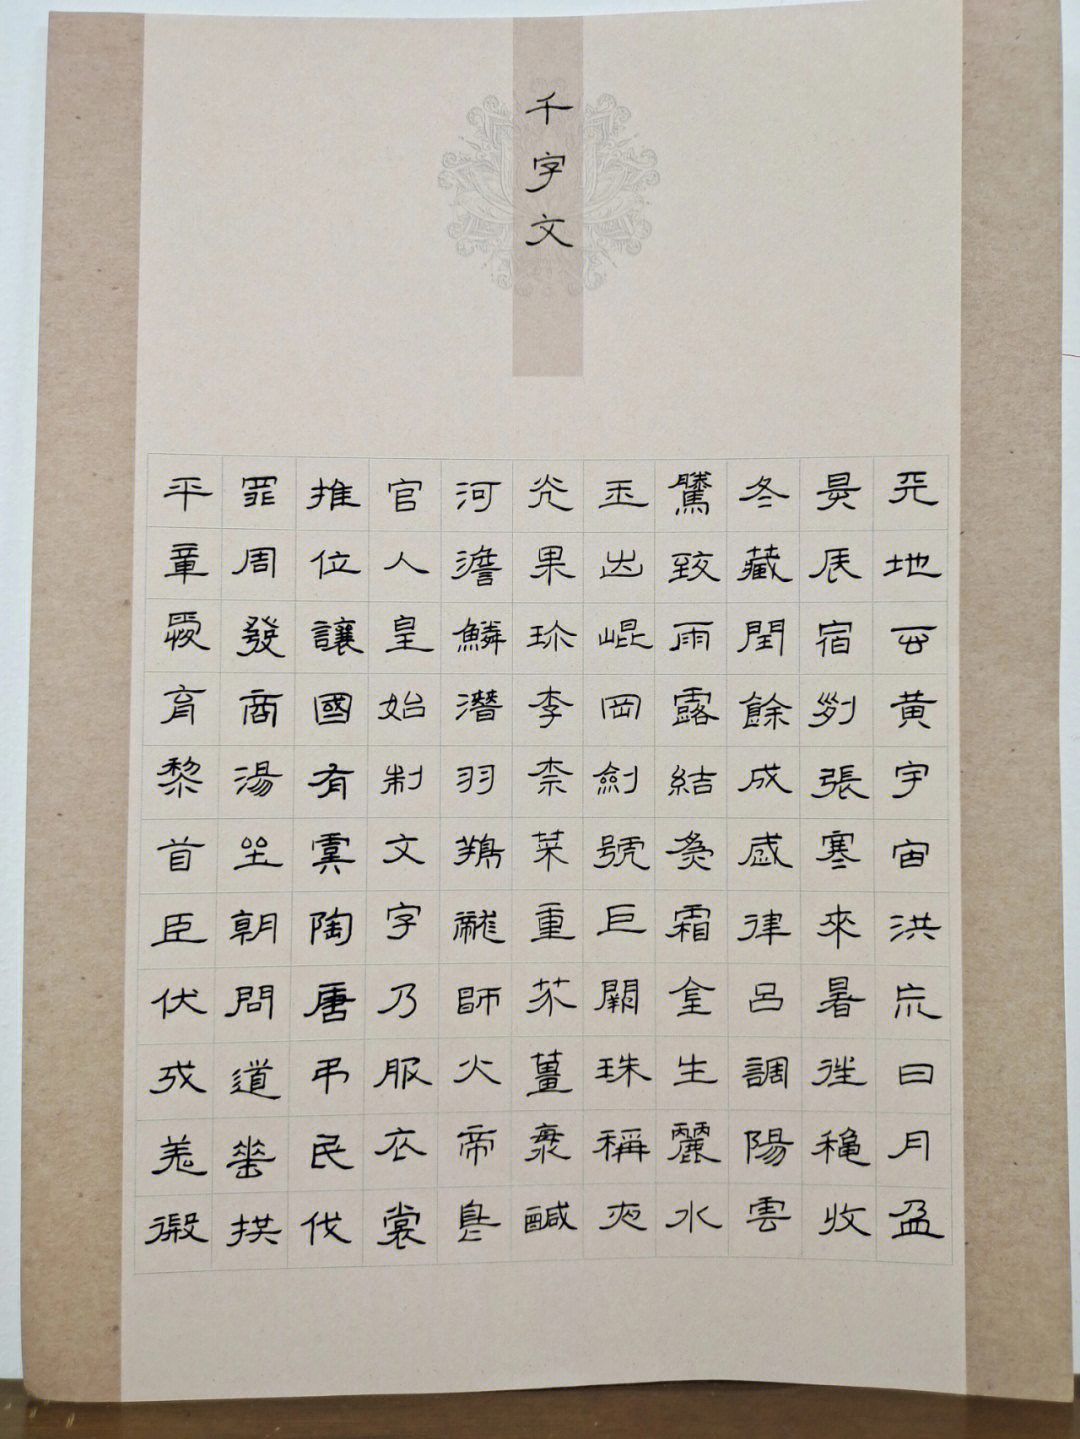 千字文
天地玄黃宇宙洪荒日月盈
昃辰宿列張寒來暑往穐收
冬藏閏餘成歲律呂調陽雲
騰致雨露結為霜金生麗水
玉出崐岡劍號巨闕珠稱夜
光果珍李柰菜重芥薑海鹹
河澹鱗潛羽翔龍師火帝鳥
官人皇始制文字乃服衣裳
推位讓國有虞陶唐弔民伐
罪周發商湯坐朝問道垂拱
平章愛育黎首臣伏戎羌遐